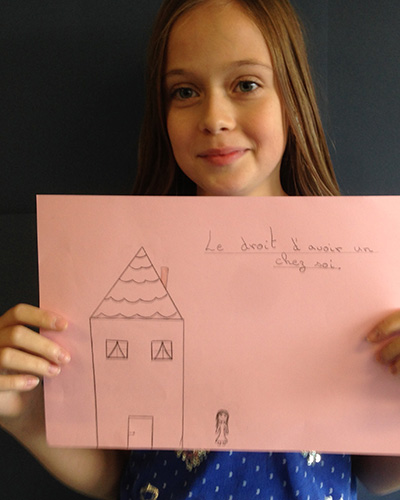 Le droit d'avoir un
chez soi.